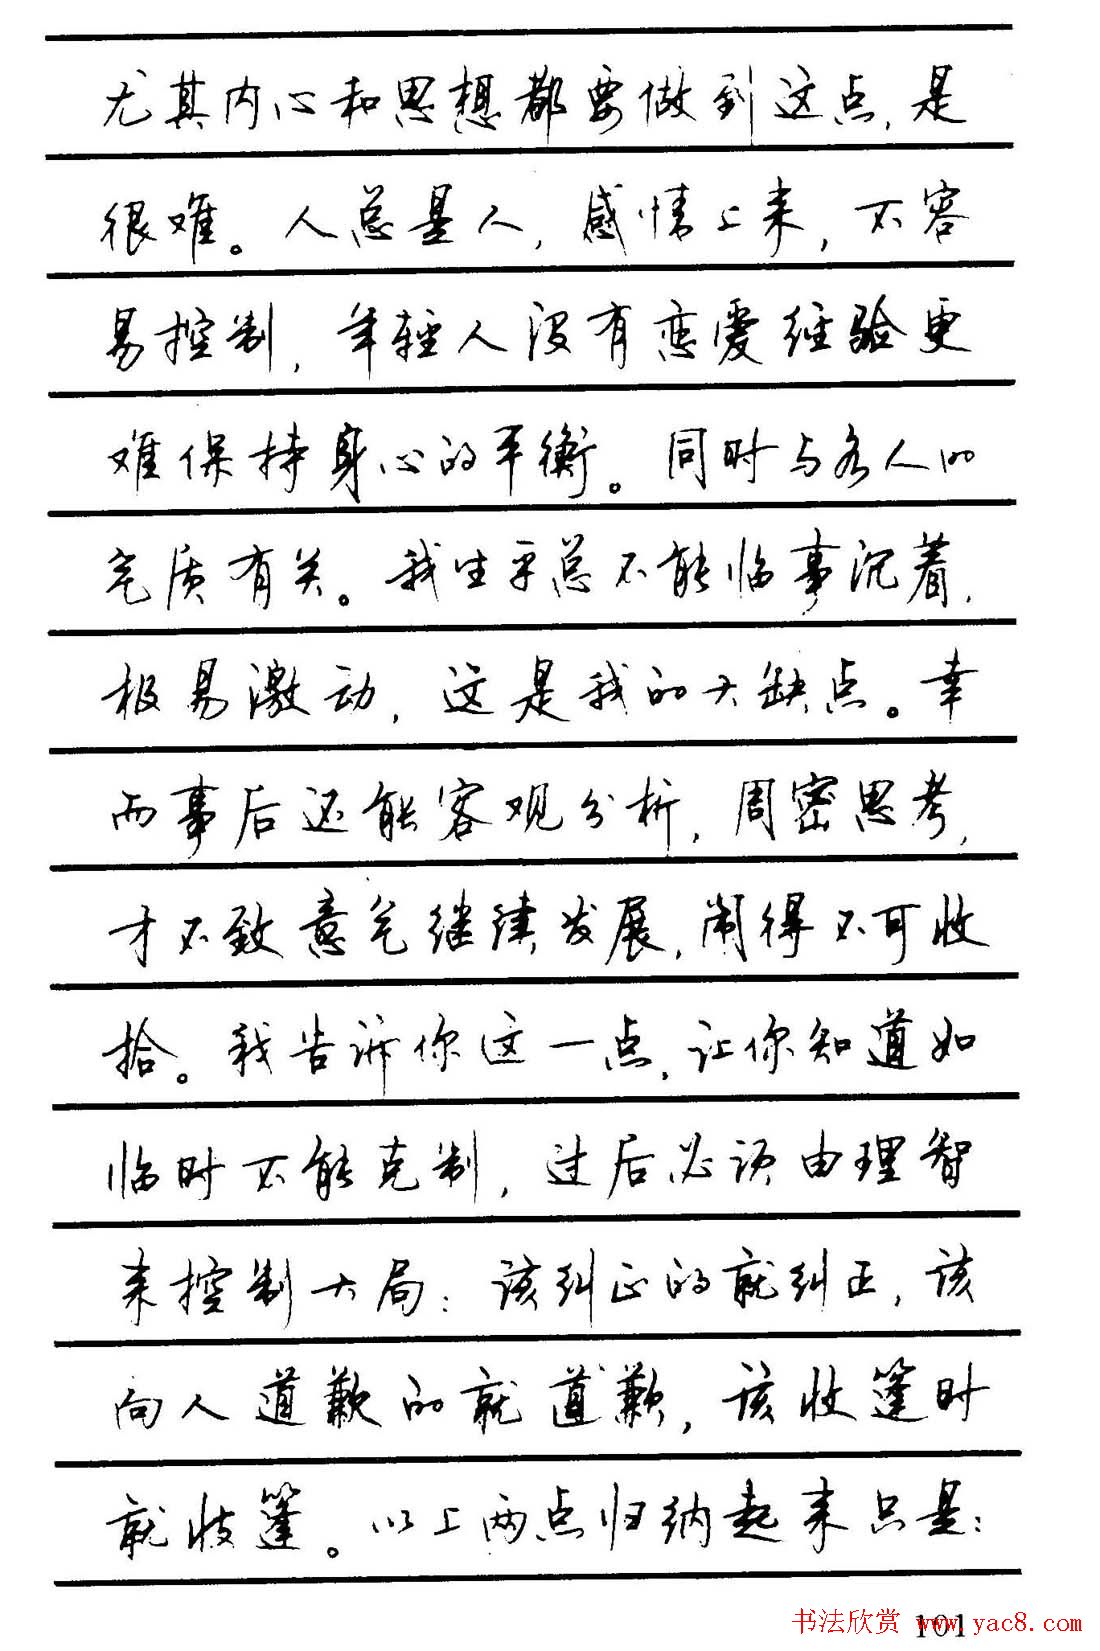 尤其内心和思想都要做到这点，是
很难。人总是人，感情上来，不容
易控制，年轻人没有恋爱经验更
难保持身心的平衡。同时与各人的
气质有关。我生平总不能临事沉着，
极易激动，这是我的大缺点。幸
而事后还能客观分析，周密思考，
才不致意气继续发展，闹得不可收
拾。我告诉你这一点，让你知道如
临时不能克制，过后必须由理智
来控制大局：该纠正的就纠正，该
向人道歉的就道歉，该收篷时
就收篷。以上两点归纳起来只是：
书法欣赏 www.yac8.com
101